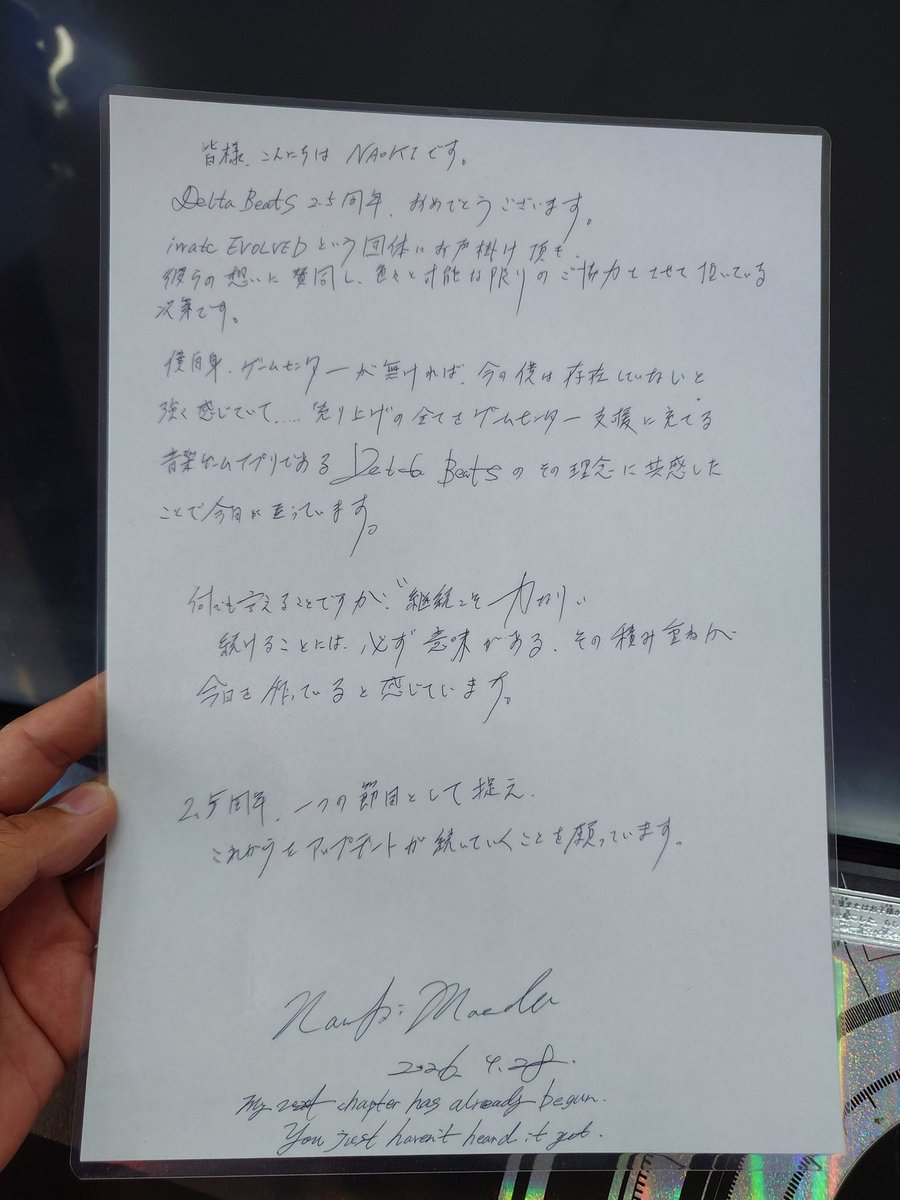 皆様、こんにちは NAOKIです。
Delta Beats 2.5周年、おめでとうございます。
innate EVOLVEDという団体にお声掛け頂き、
彼らの想いに賛同し、色々と可能な限りのご協力をさせて頂いている
次第です。
僕自身、ゲームセンターが無ければ、今の僕は存在していないと
強く感じていて.....売り上げの全てをゲームセンター支援に充てる
音楽ゲームアプリである Delta Beatsのその理念に共感した
ことで今日に至っています。
何にでも言えることですが、"継続こそ力なり"
続けることには、必ず意味がある、その積み重ねが
今日を作っていると感じています。
2.5周年、一つの節目として捉え、
これからもアップデートが続いていくことを願っています。
Naoki Maeda
2026 4.28.
My next chapter has already begun.
You just haven't heard it yet.